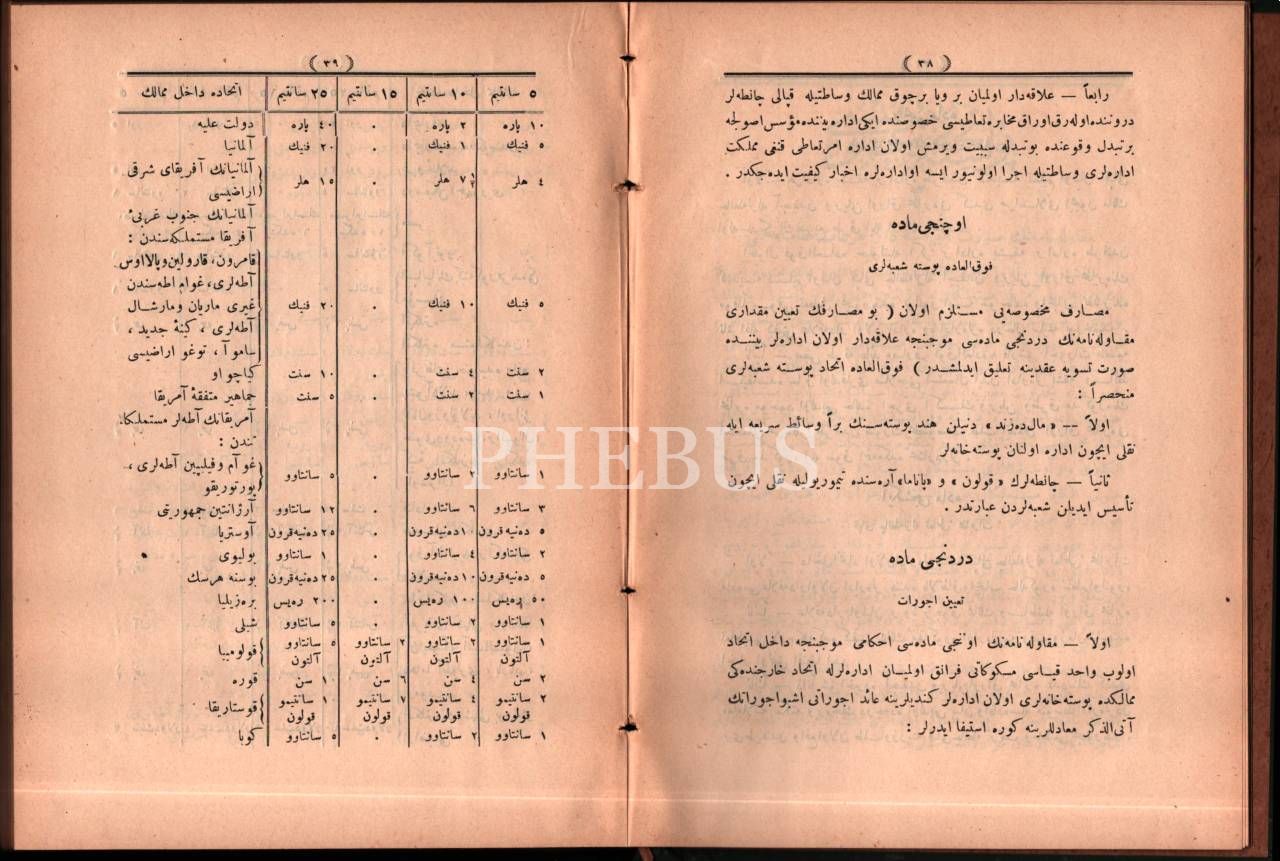 ( ٣٨ )
رابعاً — علاقه‌دار اولمیان بر ویا برچوق ممالك وساطتیله قپالی چانطه‌لر
دروننده اوله‌رق اوراق مخابره تعاطیسی خصوصنده ایکی اداره بیننده مؤسس اصولجه
برتبدل وقوعنده بوتبدله سببیت ویرمش اولان اداره امرتعاطی قنغی مملکت
اداره‌لری وساطتیله اجرا اولونیور ایسه اواداره‌لره اخبار کیفیت ایده‌جکدر .
اوچنجی ماده
فوق‌العاده پوسته شعبه‌لری
مصارف مخصوصه‌یی مستلزم اولان ( بو مصارفك تعیین مقداری
مقاوله‌نامه‌نك دردنجی ماده‌سی موجبنجه علاقه‌دار اولان اداره‌لر بیننده
صورت تسویه عقدینه تعلیق ایدلمشدر ) فوق‌العاده اتحاد پوسته شعبه‌لری
منحصراً :
اولاً — « مال‌ده‌زند » دنیلن هند پوسته‌سنك براً وسائط سریعه ایله
نقلی ایچون اداره اولنان پوسته‌خانه‌لر
ثانیاً — چانطه‌لرك « قولون » و « پاناما » آره‌سنده تیموریولیله نقلی ایچون
تأسیس ایدیلن شعبه‌لردن عبارتدر .
دردنجی ماده
تعیین اجورات
اولاً — مقاوله‌نامه‌نك اونجی ماده‌سی احکامی موجبنجه داخل اتحاد
اولوب واحد قیاسی مسکوکاتی فرانق اولمیان اداره‌لرله اتحاد خارجنده‌کی
ممالکده پوسته‌خانه‌لری اولان اداره‌لر کندیلرینه عائد اجوراتی اشبواجوراتك
آتی‌الذکر معادللرینه کوره استیفا ایدرلر :
( ٣٩ )
اتحاده داخل ممالك ٢٥ سانتیم ١٥ سانتیم ١٠ سانتیم ٥ سانتیم
دولت علیه ٤٠ پاره . ٢ پاره ١٠ پاره
آلمانیا ٢٠ فنیك . ١ فنیك ٥ فنیك
آلمانیانك آفریقای شرقی
اراضیسی ١٥ هلر . ٧ ½ هلر ٤ هلر
آلمانیانك جنوب غربیٔ
آفریقا مستملکه‌سندن :
قامرون، قارولین وپالااوس
آطه‌لری، غوام اطه‌سندن
غیری ماریان ومارشال ٢٠ فنیك . ١٠ فنیك ٥ فنیك
آطه‌لری ، کینهٔ جدید ،
ساموآ ، توغو اراضیسی
کیاچو او ١٠ سنت . ٤ سنت ٢ سنت
جماهیر متفقهٔ آمریقا ٥ سنت . ٢ سنت ١ سنت
آمریقانك آطه‌لر مستملکا‌
تندن :
غوآم وفیلیپین آطه‌لری ،
پورتوریقو ٥ سانتاوو . ٢ سانتاوو ١ سانتاوو
آرژانتین جمهوریتی ١٢ سانتاوو . ٦ سانتاوو ٣ سانتاوو
آوستریا ٢٥ ده‌نیه‌قرون . ١٠ ده‌نیه‌قرون ٥ ده‌نیه‌قرون
بولیوی ١ سانتاوو . ٤ سانتاوو ٢ سانتاوو
بوسنه هرسك ٢٥ ده‌نیه‌قرون . ١٠ ده‌نیه‌قرون ٥ ده‌نیه‌قرون
بره‌زیلیا ٢٠٠ ره‌یس . ١٠٠ ره‌یس ٥٠ ره‌یس
شیلی ٥ سانتاوو . ٢ سانتاوو ١ سانتاوو
قولومبیا ٥ سانتاوو ٢ سانتاوو ٢ سانتاوو ١ سانتاوو
آلتون آلتون آلتون آلتون
قوره ١٠ سن ٦ سن ٤ سن ٢ سن
قوستاریقا ١٠ سانتیمو ٧ سانتیمو ٤ سانتیمو ٢ سانتیمو
قولون قولون قولون قولون
کوبا ٥ سانتاوو . ٢ سانتاوو ١ سانتاوو
PHEBUS